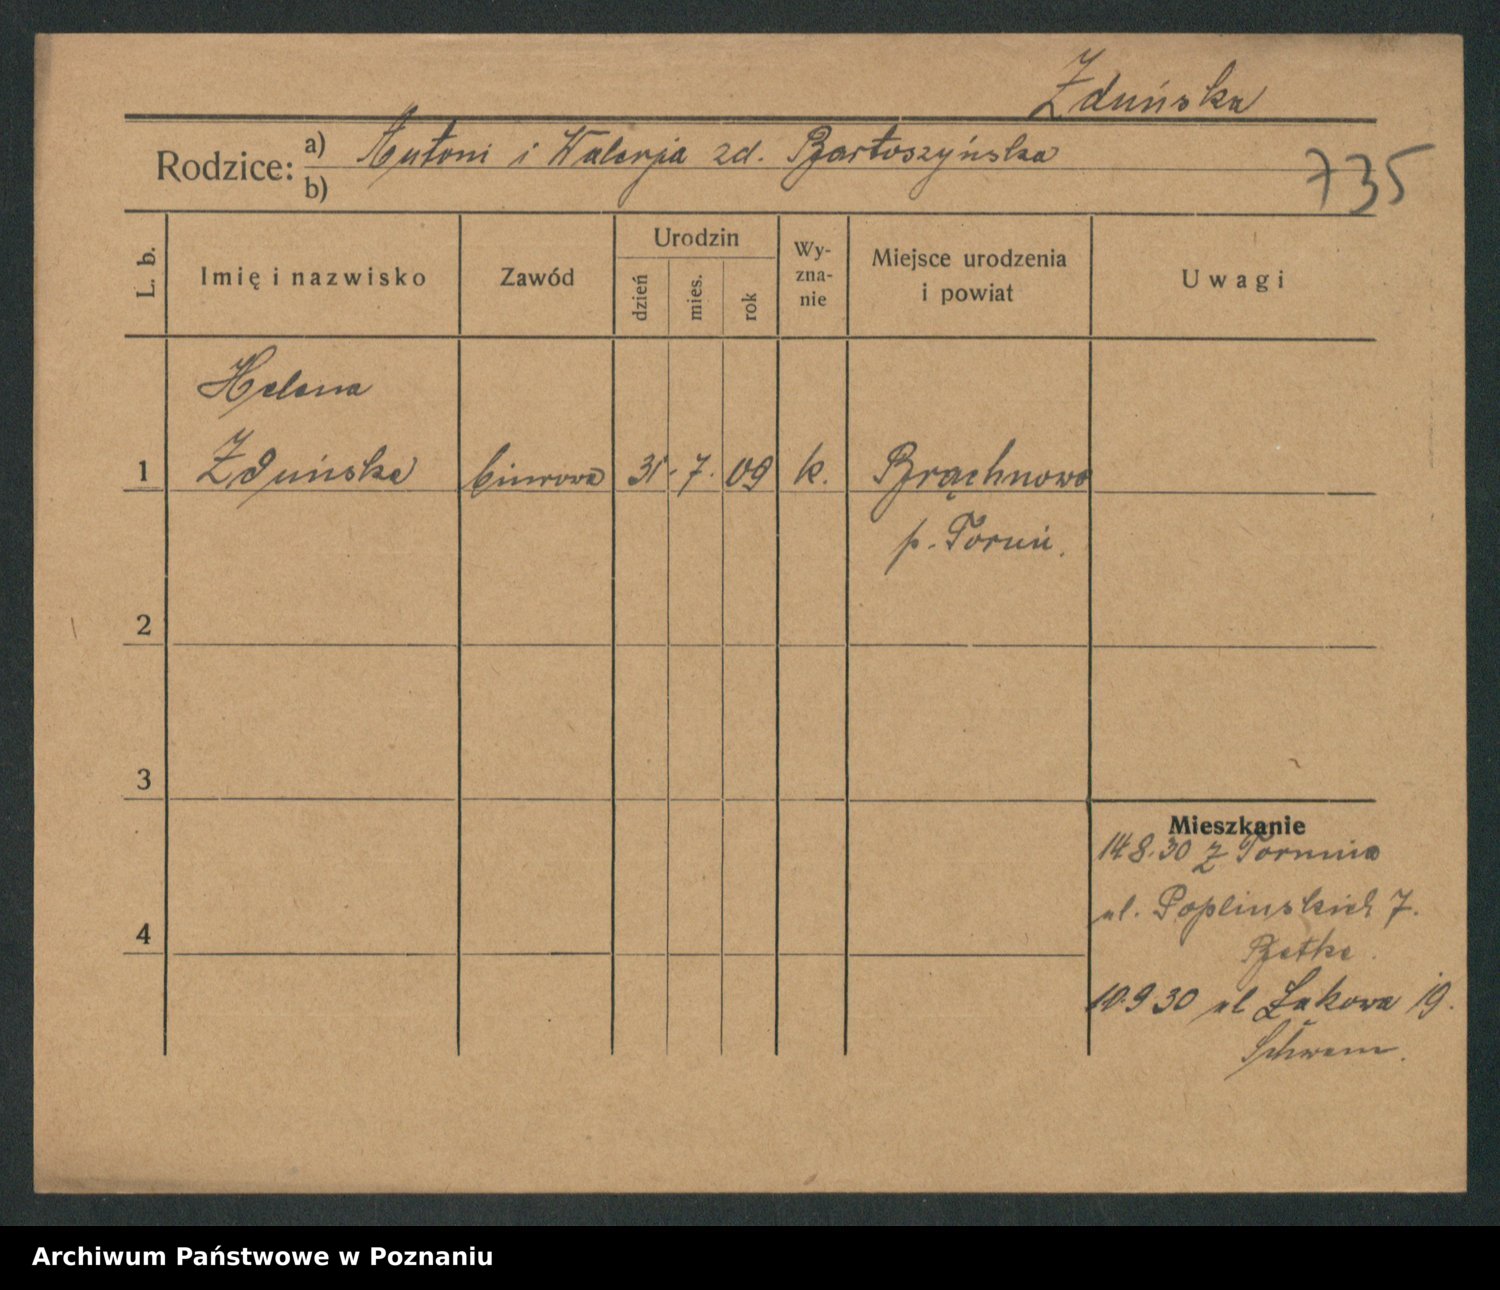 Zduńska
Rodzice: a) Antoni i Walerja zd. Bartoszyńska
b)
735
L. b.
Imię i nazwisko
Zawód
Urodzin
dzień
mies.
rok
Wy-
zna-
nie
Miejsce urodzenia
i powiat
Uwagi
Helena
1 Zduńska biurowa 31. 7. 09 k. Brąchnowo
p. Toruń.
2
3
Mieszkanie
14.8.30 z Torunia
ul. Poplinskich 7.
4
Betke.
10.9 30 ul Łąkowa 19.
Archiwum Państwowe w Poznaniu